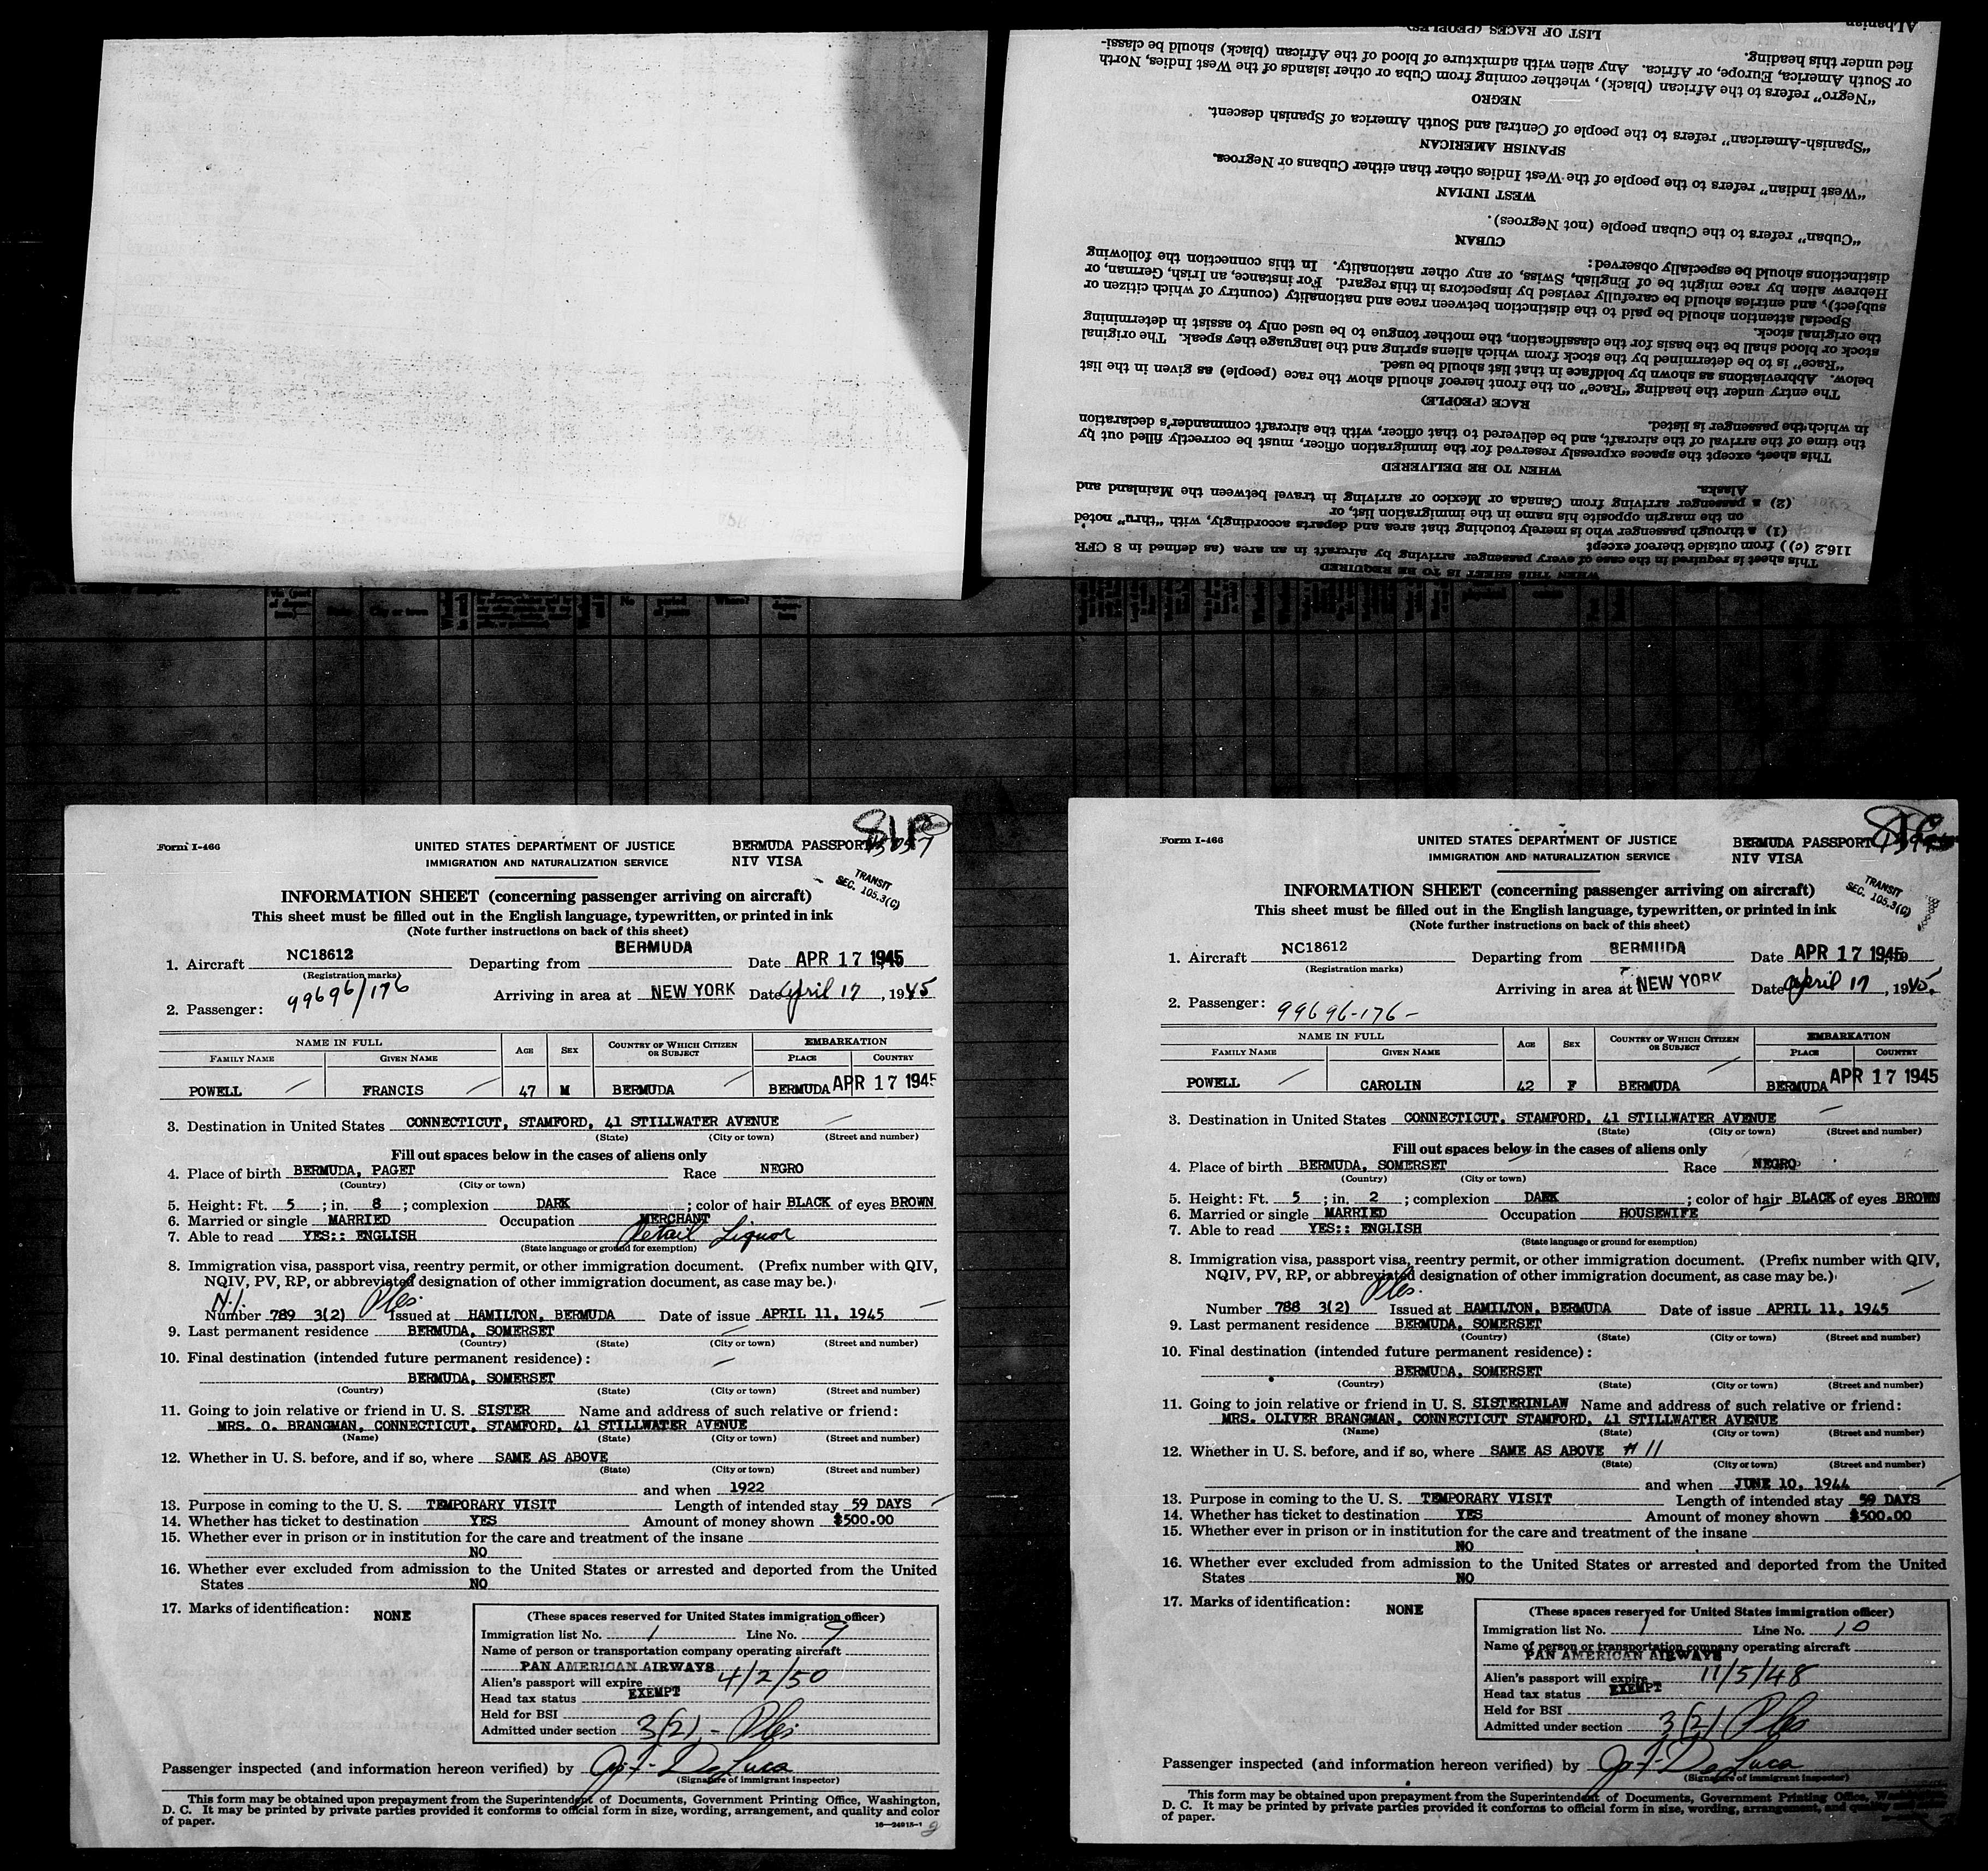 Albanian
LIST OF RACES (PEOPLES)
fied under this heading.
or South America, Europe, or Africa. Any alien with admixture of blood of the African (black) should be classi-
"Negro" refers to the African (black), whether coming from Cuba or other islands of the West Indies, North
NEGRO
"Spanish-American" refers to the people of Central and South America of Spanish descent.
SPANISH AMERICAN
"West Indian" refers to the people of the West Indies other than either Cubans or Negroes.
WEST INDIAN
"Cuban" refers to the Cuban people (not Negroes).
CUBAN
distinctions should be especially observed:
Hebrew alien by race might be of English, Swiss, or any other nationality. In this connection the following
subject), and entries should be carefully revised by inspectors in this regard. For instance, an Irish, German, or
Special attention should be paid to the distinction between race and nationality (country of which citizen or
the original stock.
stock or blood shall be the basis for the classification, the mother tongue to be used only to assist in determining
"Race" is to be determined by the stock from which aliens spring and the language they speak. The original
below. Abbreviations as shown by boldface in that list should be used.
The entry under the heading "Race" on the front hereof should show the race (people) as given in the list
RACE (PEOPLE)
in which the passenger is listed.
the time of the arrival of the aircraft, and be delivered to that officer, with the aircraft commander's declaration
This sheet, except the spaces expressly reserved for the immigration officer, must be correctly filled out by
WHEN TO BE DELIVERED
Alaska.
(2) a passenger arriving from Canada or Mexico or arriving in travel between the Mainland and
on the margin opposite his name in the immigration list, or
(1) a through passenger who is merely touching that area and departs accordingly, with "thru" noted
116.2 (c)) from outside thereof except
This sheet is required in the case of every passenger arriving by aircraft in an area (as defined in 8 CFR
WHEN THIS SHEET IS TO BE REQUIRED
State City or town No. Where?
Form I-466 UNITED STATES DEPARTMENT OF JUSTICE BERMUDA PASSPORT
IMMIGRATION AND NATURALIZATION SERVICE NIV VISA
TRANSIT
SEC. 105.3(C)
INFORMATION SHEET (concerning passenger arriving on aircraft)
This sheet must be filled out in the English language, typewritten, or printed in ink
(Note further instructions on back of this sheet)
1. Aircraft NC18612 Departing from BERMUDA Date APR 17 1945
(Registration marks)
Arriving in area at NEW YORK Date April 17, 1945
2. Passenger: 99696/176
NAME IN FULL AGE SEX COUNTRY OF WHICH CITIZEN OR SUBJECT EMBARKATION
FAMILY NAME GIVEN NAME PLACE COUNTRY
POWELL FRANCIS 47 M BERMUDA BERMUDA APR 17 1945
3. Destination in United States CONNECTICUT, STAMFORD, 41 STILLWATER AVENUE
(State) (City or town) (Street and number)
Fill out spaces below in the cases of aliens only
4. Place of birth BERMUDA, PAGET Race NEGRO
(Country) (City or town)
5. Height: Ft. 5 ; in. 8 ; complexion DARK ; color of hair BLACK of eyes BROWN
6. Married or single MARRIED Occupation MERCHANT
7. Able to read YES:: ENGLISH Retail Liquor
(State language or ground for exemption)
8. Immigration visa, passport visa, reentry permit, or other immigration document. (Prefix number with QIV,
NQIV, PV, RP, or abbreviated designation of other immigration document, as case may be.)
Number 789 3(2) Issued at HAMILTON, BERMUDA Date of issue APRIL 11, 1945
9. Last permanent residence BERMUDA, SOMERSET
(Country) (State) (City or town) (Street and number)
10. Final destination (intended future permanent residence):
BERMUDA, SOMERSET
(Country) (State) (City or town) (Street and number)
11. Going to join relative or friend in U. S. SISTER Name and address of such relative or friend:
MRS. O. BRANGMAN, CONNECTICUT, STAMFORD, 41 STILLWATER AVENUE
(Name) (State) (City or town) (Street and number)
12. Whether in U. S. before, and if so, where SAME AS ABOVE
(State) (City or town) (Street and number)
and when 1922
13. Purpose in coming to the U. S. TEMPORARY VISIT Length of intended stay 59 DAYS
14. Whether has ticket to destination YES Amount of money shown $500.00
15. Whether ever in prison or in institution for the care and treatment of the insane
NO
16. Whether ever excluded from admission to the United States or arrested and deported from the United
States NO
17. Marks of identification: NONE
(These spaces reserved for United States immigration officer)
Immigration list No. 1 Line No. 9
Name of person or transportation company operating aircraft
PAN AMERICAN AIRWAYS
Alien's passport will expire 4/2/50
Head tax status EXEMPT
Held for BSI
Admitted under section 3(2)
Passenger inspected (and information hereon verified) by Jos F. DeLuca
(Signature of immigrant inspector)
This form may be obtained upon prepayment from the Superintendent of Documents, Government Printing Office, Washington,
D. C. It may be printed by private parties provided it conforms to official form in size, wording, arrangement, and quality and color
of paper.
16—24915-1
Form I-466 UNITED STATES DEPARTMENT OF JUSTICE BERMUDA PASSPORT
IMMIGRATION AND NATURALIZATION SERVICE NIV VISA
TRANSIT
SEC. 105.3(C)
INFORMATION SHEET (concerning passenger arriving on aircraft)
This sheet must be filled out in the English language, typewritten, or printed in ink
(Note further instructions on back of this sheet)
1. Aircraft NC18612 Departing from BERMUDA Date APR 17 1945
(Registration marks)
Arriving in area at NEW YORK Date April 17, 1945.
2. Passenger: 99696-176-
NAME IN FULL AGE SEX COUNTRY OF WHICH CITIZEN OR SUBJECT EMBARKATION
FAMILY NAME GIVEN NAME PLACE COUNTRY
POWELL CAROLIN 42 F BERMUDA BERMUDA APR 17 1945
3. Destination in United States CONNECTICUT, STAMFORD, 41 STILLWATER AVENUE
(State) (City or town) (Street and number)
Fill out spaces below in the cases of aliens only
4. Place of birth BERMUDA, SOMERSET Race NEGRO
(Country) (City or town)
5. Height: Ft. 5 ; in. 2 ; complexion DARK ; color of hair BLACK of eyes BROWN
6. Married or single MARRIED Occupation HOUSEWIFE
7. Able to read YES:: ENGLISH
(State language or ground for exemption)
8. Immigration visa, passport visa, reentry permit, or other immigration document. (Prefix number with QIV,
NQIV, PV, RP, or abbreviated designation of other immigration document, as case may be.)
Number 788 3(2) Issued at HAMILTON, BERMUDA Date of issue APRIL 11, 1945
9. Last permanent residence BERMUDA, SOMERSET
(Country) (State) (City or town) (Street and number)
10. Final destination (intended future permanent residence):
BERMUDA, SOMERSET
(Country) (State) (City or town) (Street and number)
11. Going to join relative or friend in U. S. SISTERINLAW Name and address of such relative or friend:
MRS. OLIVER BRANGMAN, CONNECTICUT STAMFORD, 41 STILLWATER AVENUE
(Name) (State) (City or town) (Street and number)
12. Whether in U. S. before, and if so, where SAME AS ABOVE # 11
(State) (City or town) (Street and number)
and when JUNE 10, 1944
13. Purpose in coming to the U. S. TEMPORARY VISIT Length of intended stay 59 DAYS
14. Whether has ticket to destination YES Amount of money shown $500.00
15. Whether ever in prison or in institution for the care and treatment of the insane
NO
16. Whether ever excluded from admission to the United States or arrested and deported from the United
States NO
17. Marks of identification: NONE
(These spaces reserved for United States immigration officer)
Immigration list No. 1 Line No. 10
Name of person or transportation company operating aircraft
PAN AMERICAN AIRWAYS
Alien's passport will expire 11/5/48
Head tax status EXEMPT
Held for BSI
Admitted under section 3(2)
Passenger inspected (and information hereon verified) by Jos F. DeLuca
(Signature of immigrant inspector)
This form may be obtained upon prepayment from the Superintendent of Documents, Government Printing Office, Washington,
D. C. It may be printed by private parties provided it conforms to official form in size, wording, arrangement, and
of paper.